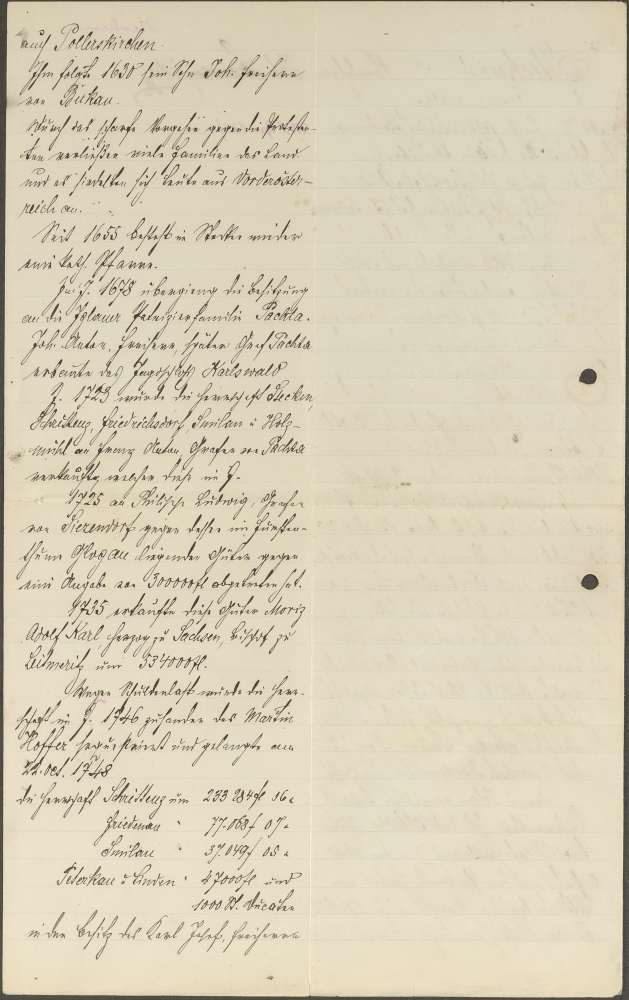 auf Pollerskirchen.
Ihm folgte 1630 sein Sohn Joh. Freiherr
von Bukau.
Durch das scharfe Vorgehen gegen die Protestan-
ten verließen viele Familien das Land
und es siedelten sich Leute aus Vorderöster-
reich an.
Seit 1655 besteht in Stecken wieder
eine kath. Pfarre.
Im J. 1678 übergieng die Besitzung
an die Iglauer Patrizierfamilie Pachta.
Joh. Anton, Freiherr, später Graf Pachta
erbaute das Jagdschloß Karlswald
J. 1723 wurde die Herrschaft Stecken,
Schrittenz, Friedrichsdorf, Smilau u Holz-
mühl an Franz Anton, Grafen von Pachta
verkauft, welcher diese im J.
1725 an Philipp Ludwig, Grafen
von Sizendorf gegen dessen im Fürsten-
thum Glogau liegenden Güter gegen
eine Angabe von 300000 fl abgetreten hat.
1735 erkaufte diese Güter Moriz
Adolf Karl Herzog zu Sachsen, Bischof zu
Leitmeritz um 534000 fl.
Wegen Schuldenlast wurde die Herr-
schaft im J. 1746 zuhanden des Martin
Koffer sequestriert und gelangte am
22. Oct. 1748
die Herrschaft Schrittenz um 233 284 fl 06
Friedenau " 77.068 f 07
Smilau " 37.049 f 05
Peterkau u Linden " 47000 fl und
1000 St. Ducaten
in den Besitz des Karl Josef, Freiherrn